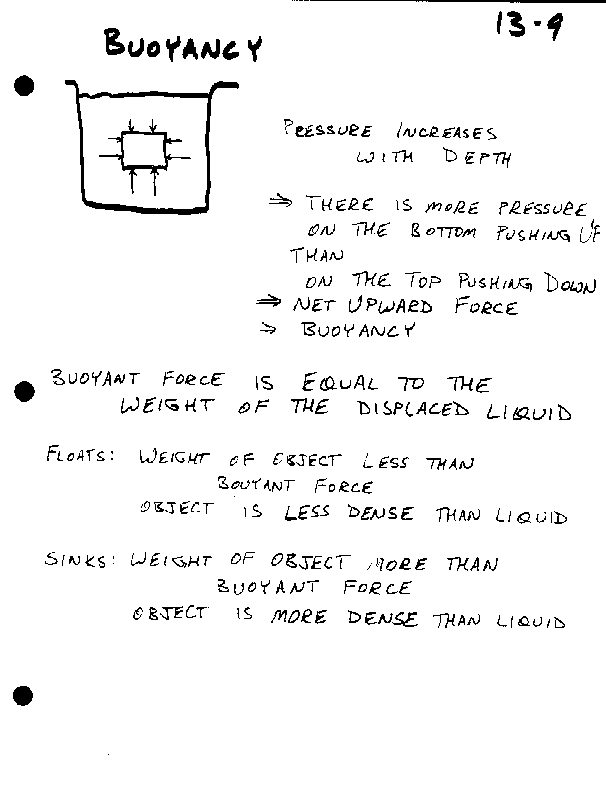 13-9
BUOYANCY
PRESSURE INCREASES
WITH DEPTH
⇒ THERE IS MORE PRESSURE
ON THE BOTTOM PUSHING UP
THAN
ON THE TOP PUSHING DOWN
⇒ NET UPWARD FORCE
⇒ BUOYANCY
BUOYANT FORCE IS EQUAL TO THE
WEIGHT OF THE DISPLACED LIQUID
FLOATS: WEIGHT OF OBJECT LESS THAN
BOUYANT FORCE
OBJECT IS LESS DENSE THAN LIQUID
SINKS: WEIGHT OF OBJECT MORE THAN
BUOYANT FORCE
OBJECT IS MORE DENSE THAN LIQUID